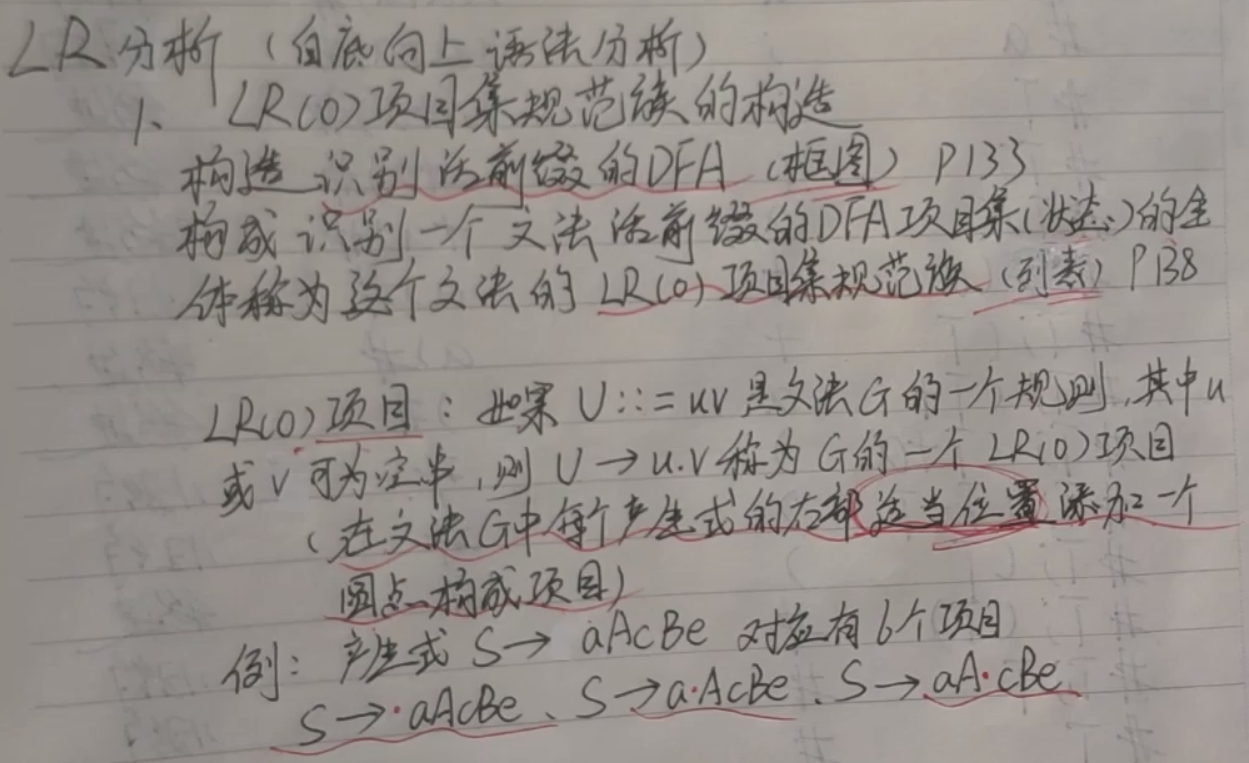 LR分析（自底向上语法分析）
1、 LR(0)项目集规范族的构造
构造识别活前缀的DFA（框图）P133
构成识别一个文法活前缀的DFA项目集(状态)的全
体称为这个文法的LR(0)项目集规范族（列表）P138
LR(0)项目：如果U::=uv是文法G的一个规则,其中u
或v可为空串,则U→u.v称为G的一个LR(0)项目
（在文法G中每个产生式的右部适当位置添加一个
圆点构成项目）
例：产生式S→aAcBe对应有6个项目
S→·aAcBe、S→a·AcBe、S→aA·cBe